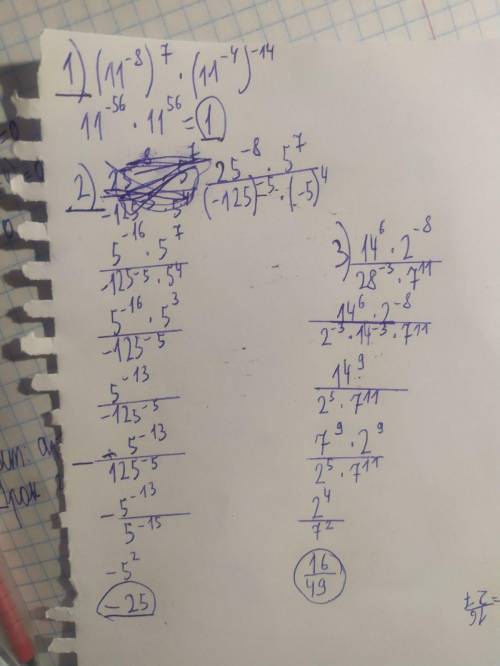 1) (11⁻⁸)⁷ · (11⁻⁴)⁻¹⁴
11⁻⁵⁶ · 11⁵⁶ = 1
2) 25⁻⁸ · 5⁷ / (-125)⁻⁵ · (-5)⁴
5⁻¹⁶ · 5⁷ / -125⁻⁵ · 5⁴
5⁻¹⁶ · 5³ / -125⁻⁵
5⁻¹³ / -125⁻⁵
- 5⁻¹³ / 125⁻⁵
- 5⁻¹³ / 5⁻¹⁵
-5²
-25
3) 14⁶ · 2⁻⁸ / 28⁻³ · 7¹¹
14⁶ · 2⁻⁸ / 2⁻³ · 14⁻³ · 7¹¹
14⁹ / 2⁵ · 7¹¹
7⁹ · 2⁹ / 2⁵ · 7¹¹
2⁴ / 7²
16 / 49